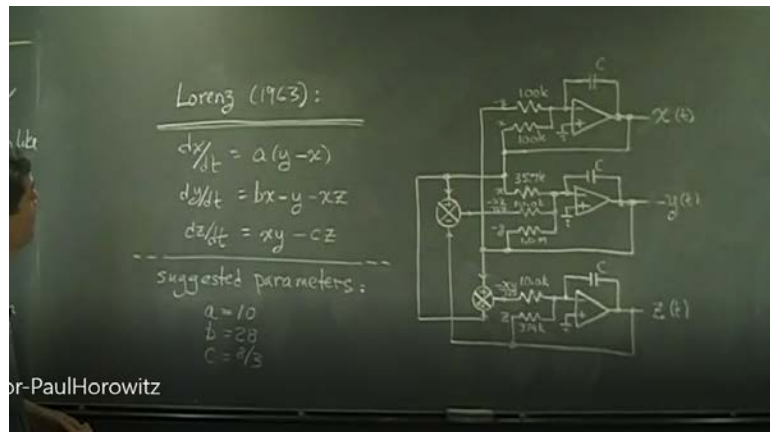 Lorenz (1963):
dx/dt = a(y-x)
dy/dt = bx-y-xz
dz/dt = xy-cz
suggested parameters:
a=10
b=28
c=8/3
like
C
100k
100k
x(t)
C
35.7k
x
1.0M
-y(t)
C
z
z(t)
or-PaulHorowitz